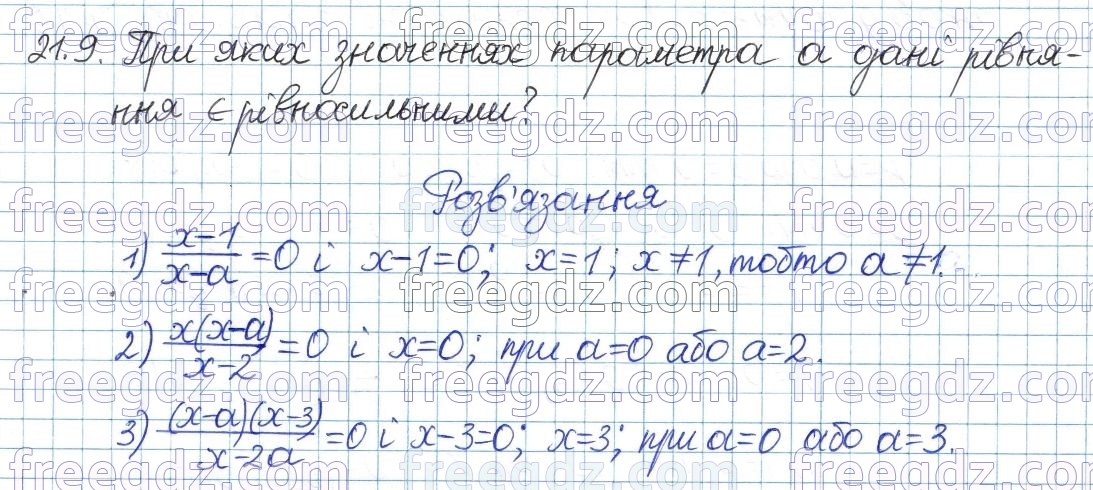 21.9. При яких значеннях параметра а дані рівня-
ння є рівносильними?
Розв'язання
1) x-1/x-a = 0 і x-1=0; x=1; x≠1, тобто a≠1.
2) x(x-a)/x-2 = 0 і x=0; при a=0 або a=2.
3) (x-a)(x-3)/x-2a = 0 і x-3=0; x=3; при a=0 або a=3.
freegdz.com